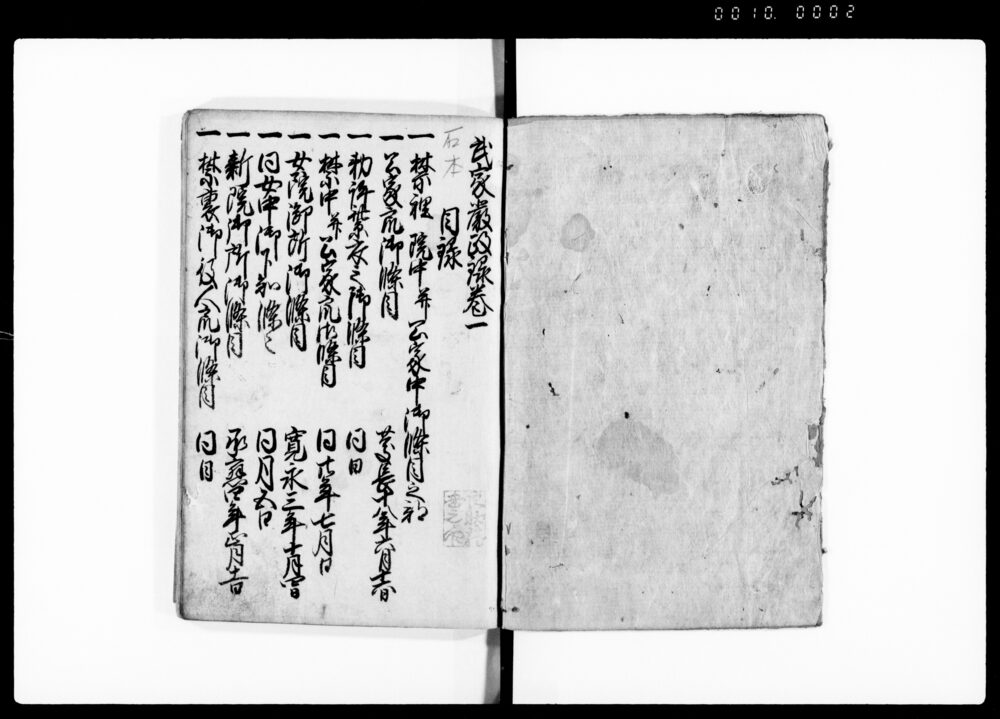 0010. 0002
武家嚴政録卷一
石本
目録
一 禁裡 院中并公家中御條目之部
一 公家衆御條目 慶長十八年六月十六日
一 勅許紫衣之御條目 同日
一 禁中并公家衆御條目 同廿年七月日
一 女院御所御條目 寛永三年十月
一 同女中御下知條々 同月五日
一 新院御所御條目 年正月十一日
一 禁裏御役人衆御條目 同日